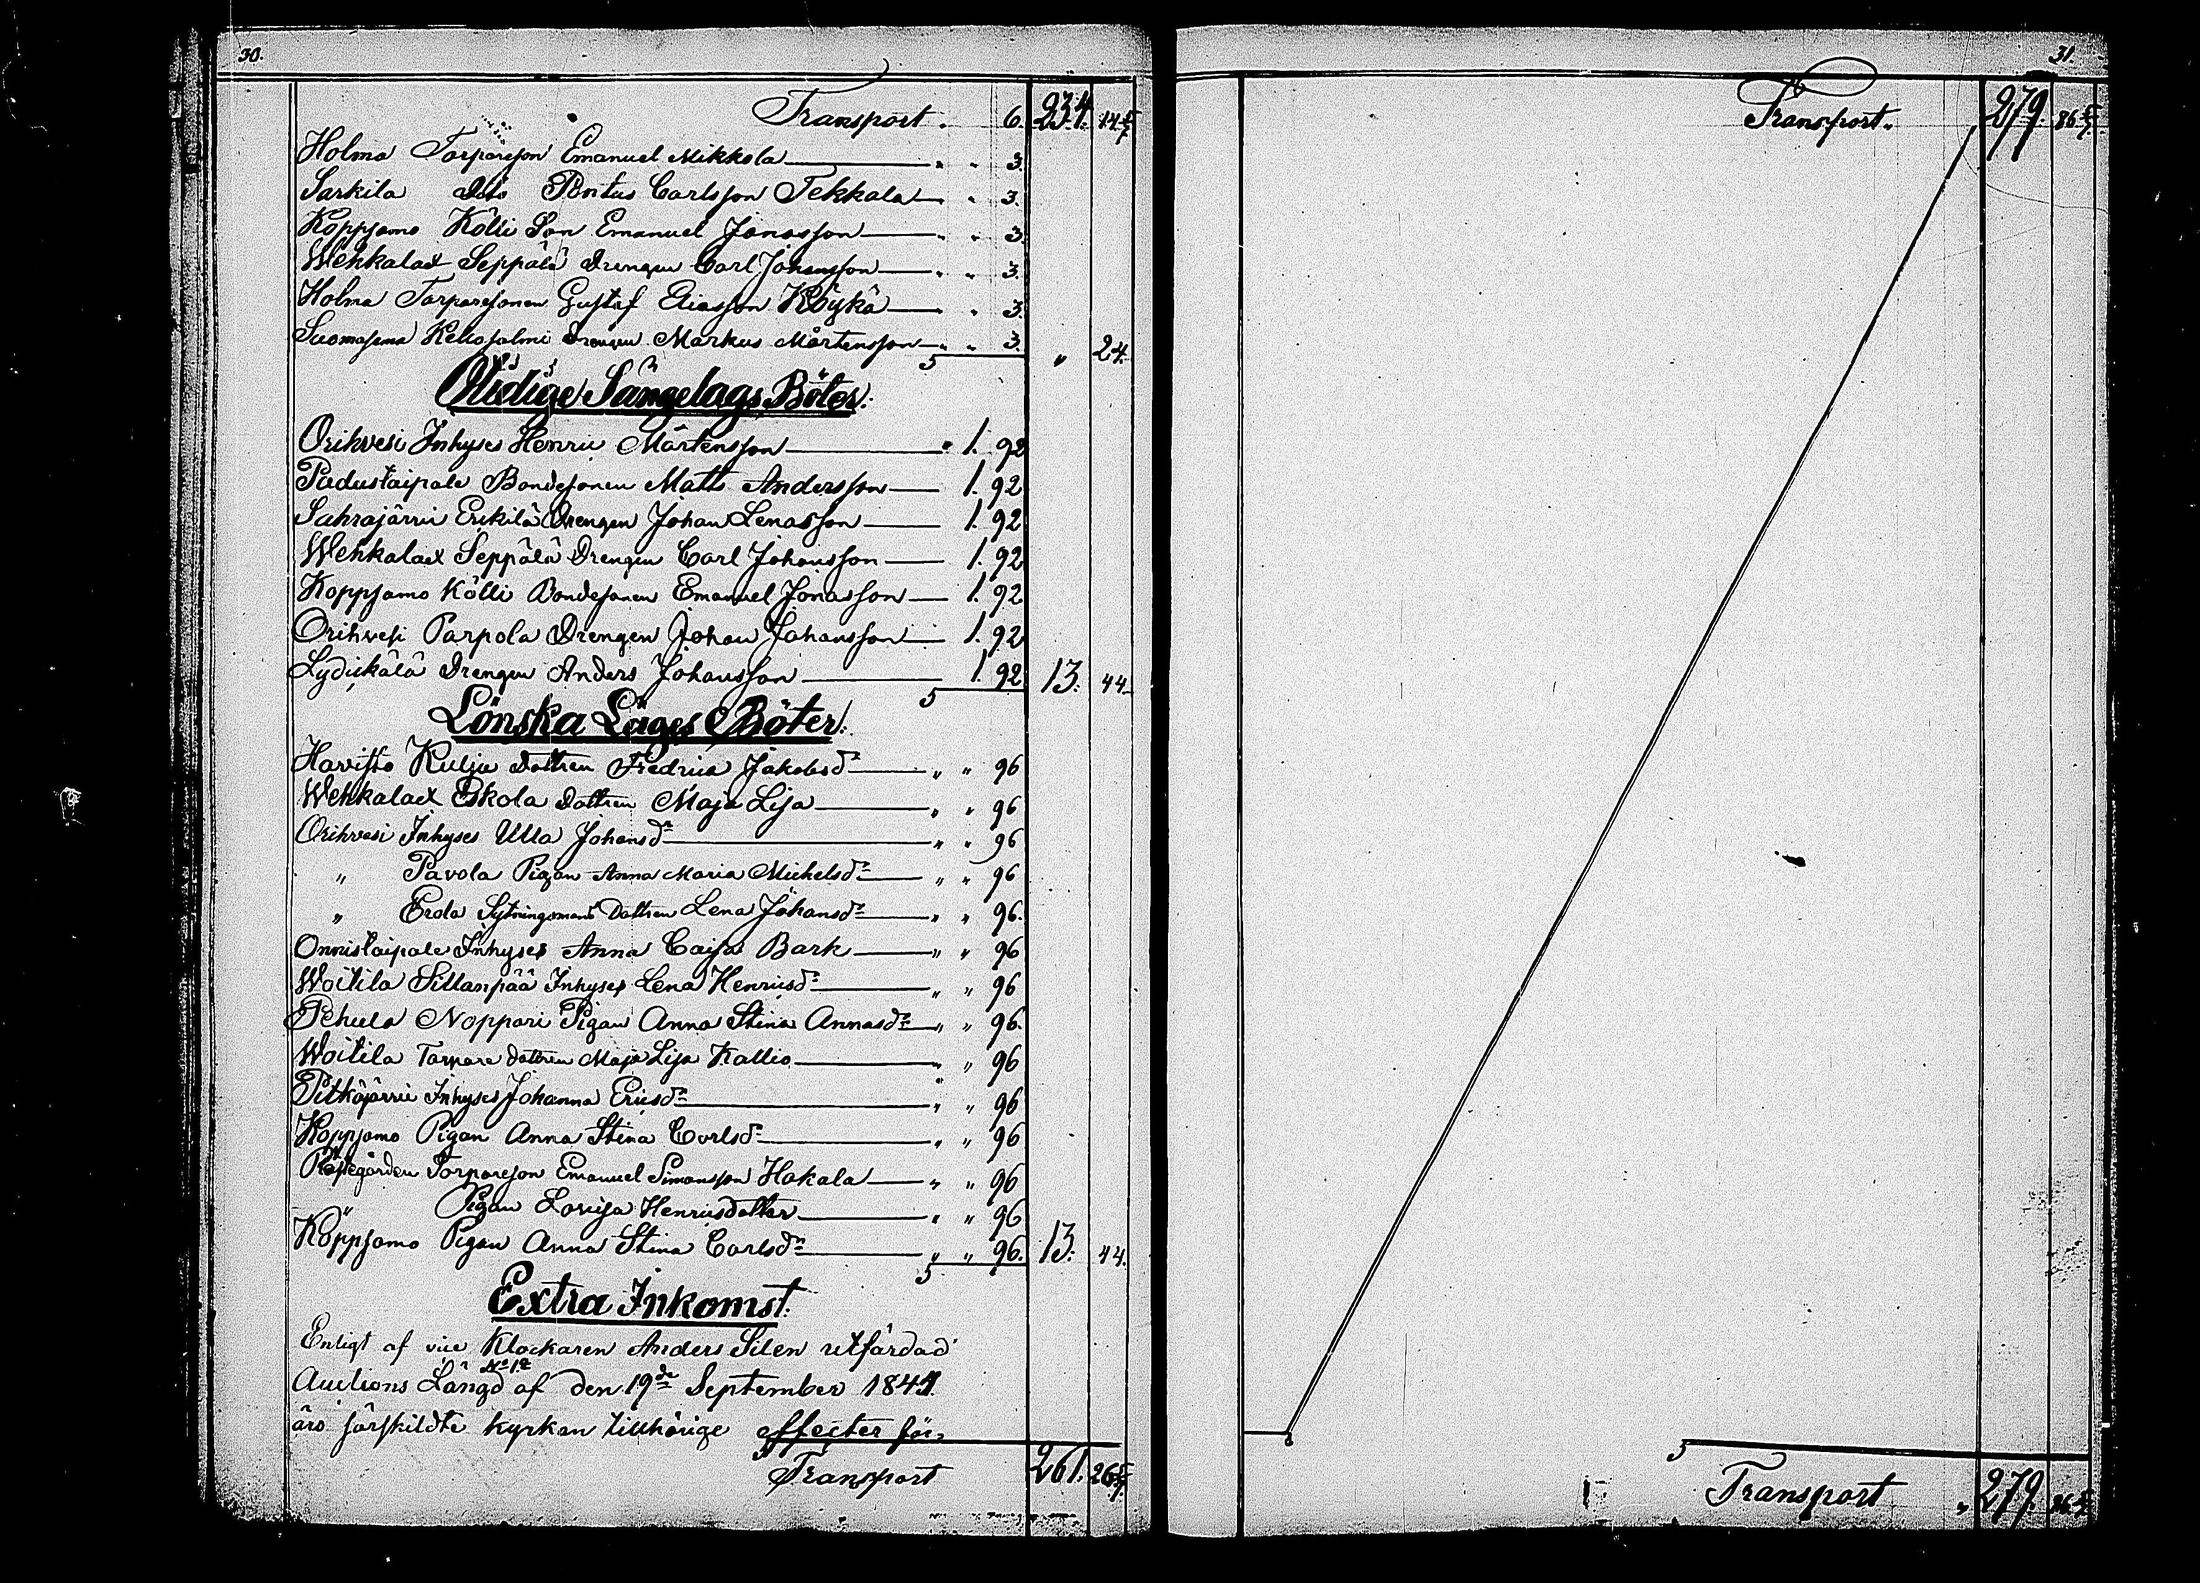 30.
Transport. 6. 234. 14 5/7
Holma Torpareson Emanuel Mikkola " " 3.
Sarkila Dito Pontus Carlsson Tekkala " 3.
Koppsamo Kölli Son Emanuel Jonasson " " 3.
Wehkalax Seppälä Drengen Carl Johansson " " 3.
Holma Torparesonen Gustaf Eliasson Köykä " " 3.
Suomasema Drengen Markus Mårtensson " " 3. " 24.
Otidige Sängelags Böter:
Orihvesi Inhyses Henric Mårtensson " 1. 92
Padustaipale Bondesonen Matts Andersson 1. 92
Sahrajärvi Erkilä Drengen Johan Lenasson 1. 92
Wehkalax Seppälä Drengen Carl Johansson 1. 92
Koppsamo Kölli Bondesonen Emanuel Jonasson 1. 92
Orihvesi Parpola Drengen Johan Johansson 1. 92
Lydickälä Drengen Anders Johansson 1 92 13. 44
Lönska Läges Böter:
Havisto Kulju Dottren Fredrica Jakobsdr " " 96
Wehkalax Eskola Dottren Maja Lisa " " 96
Orihvesi Inhyses Ulla Johansdr " " 96
" Pavola Pigan Anna Maria Michelsdr " " 96
" Erola Sytningsmans Dottren Lena Johansdr " " 96.
Onnistaipale Inhyses Anna Caisa Bark " " 96
Woitila Sillanpää Inhyses Lena Henricsdr " " 96
Pehula Noppari Pigan Anna Stina Annasdr " " 96.
Woitila Torpare Dottren Maja Lisa Kallio " " 96
Pitkäjärvi Inhyses Johanna Ericsdr " " 96
Koppsamo Pigan Anna Stina Carlsdr " " 96
Prestgården Torpareson Emanuel Simonsson Hakala " " 96
" Pigan Lovisa Henricsdotter " " 96
Koppsamo Pigan Anna Stina Carlsdr " " 96. 13. 44.
Extra Inkomst.
Enligt af vice Klockaren Anders Silen utfärdad
Auctions Längd No 1a af den 19de September 1847.
äro särskildte kyrkan tillhörige effecter för=
Transport 261. 26 5/7.
31.
Transport. 279. 86 5/7.
Transport " 279. 86 5/7